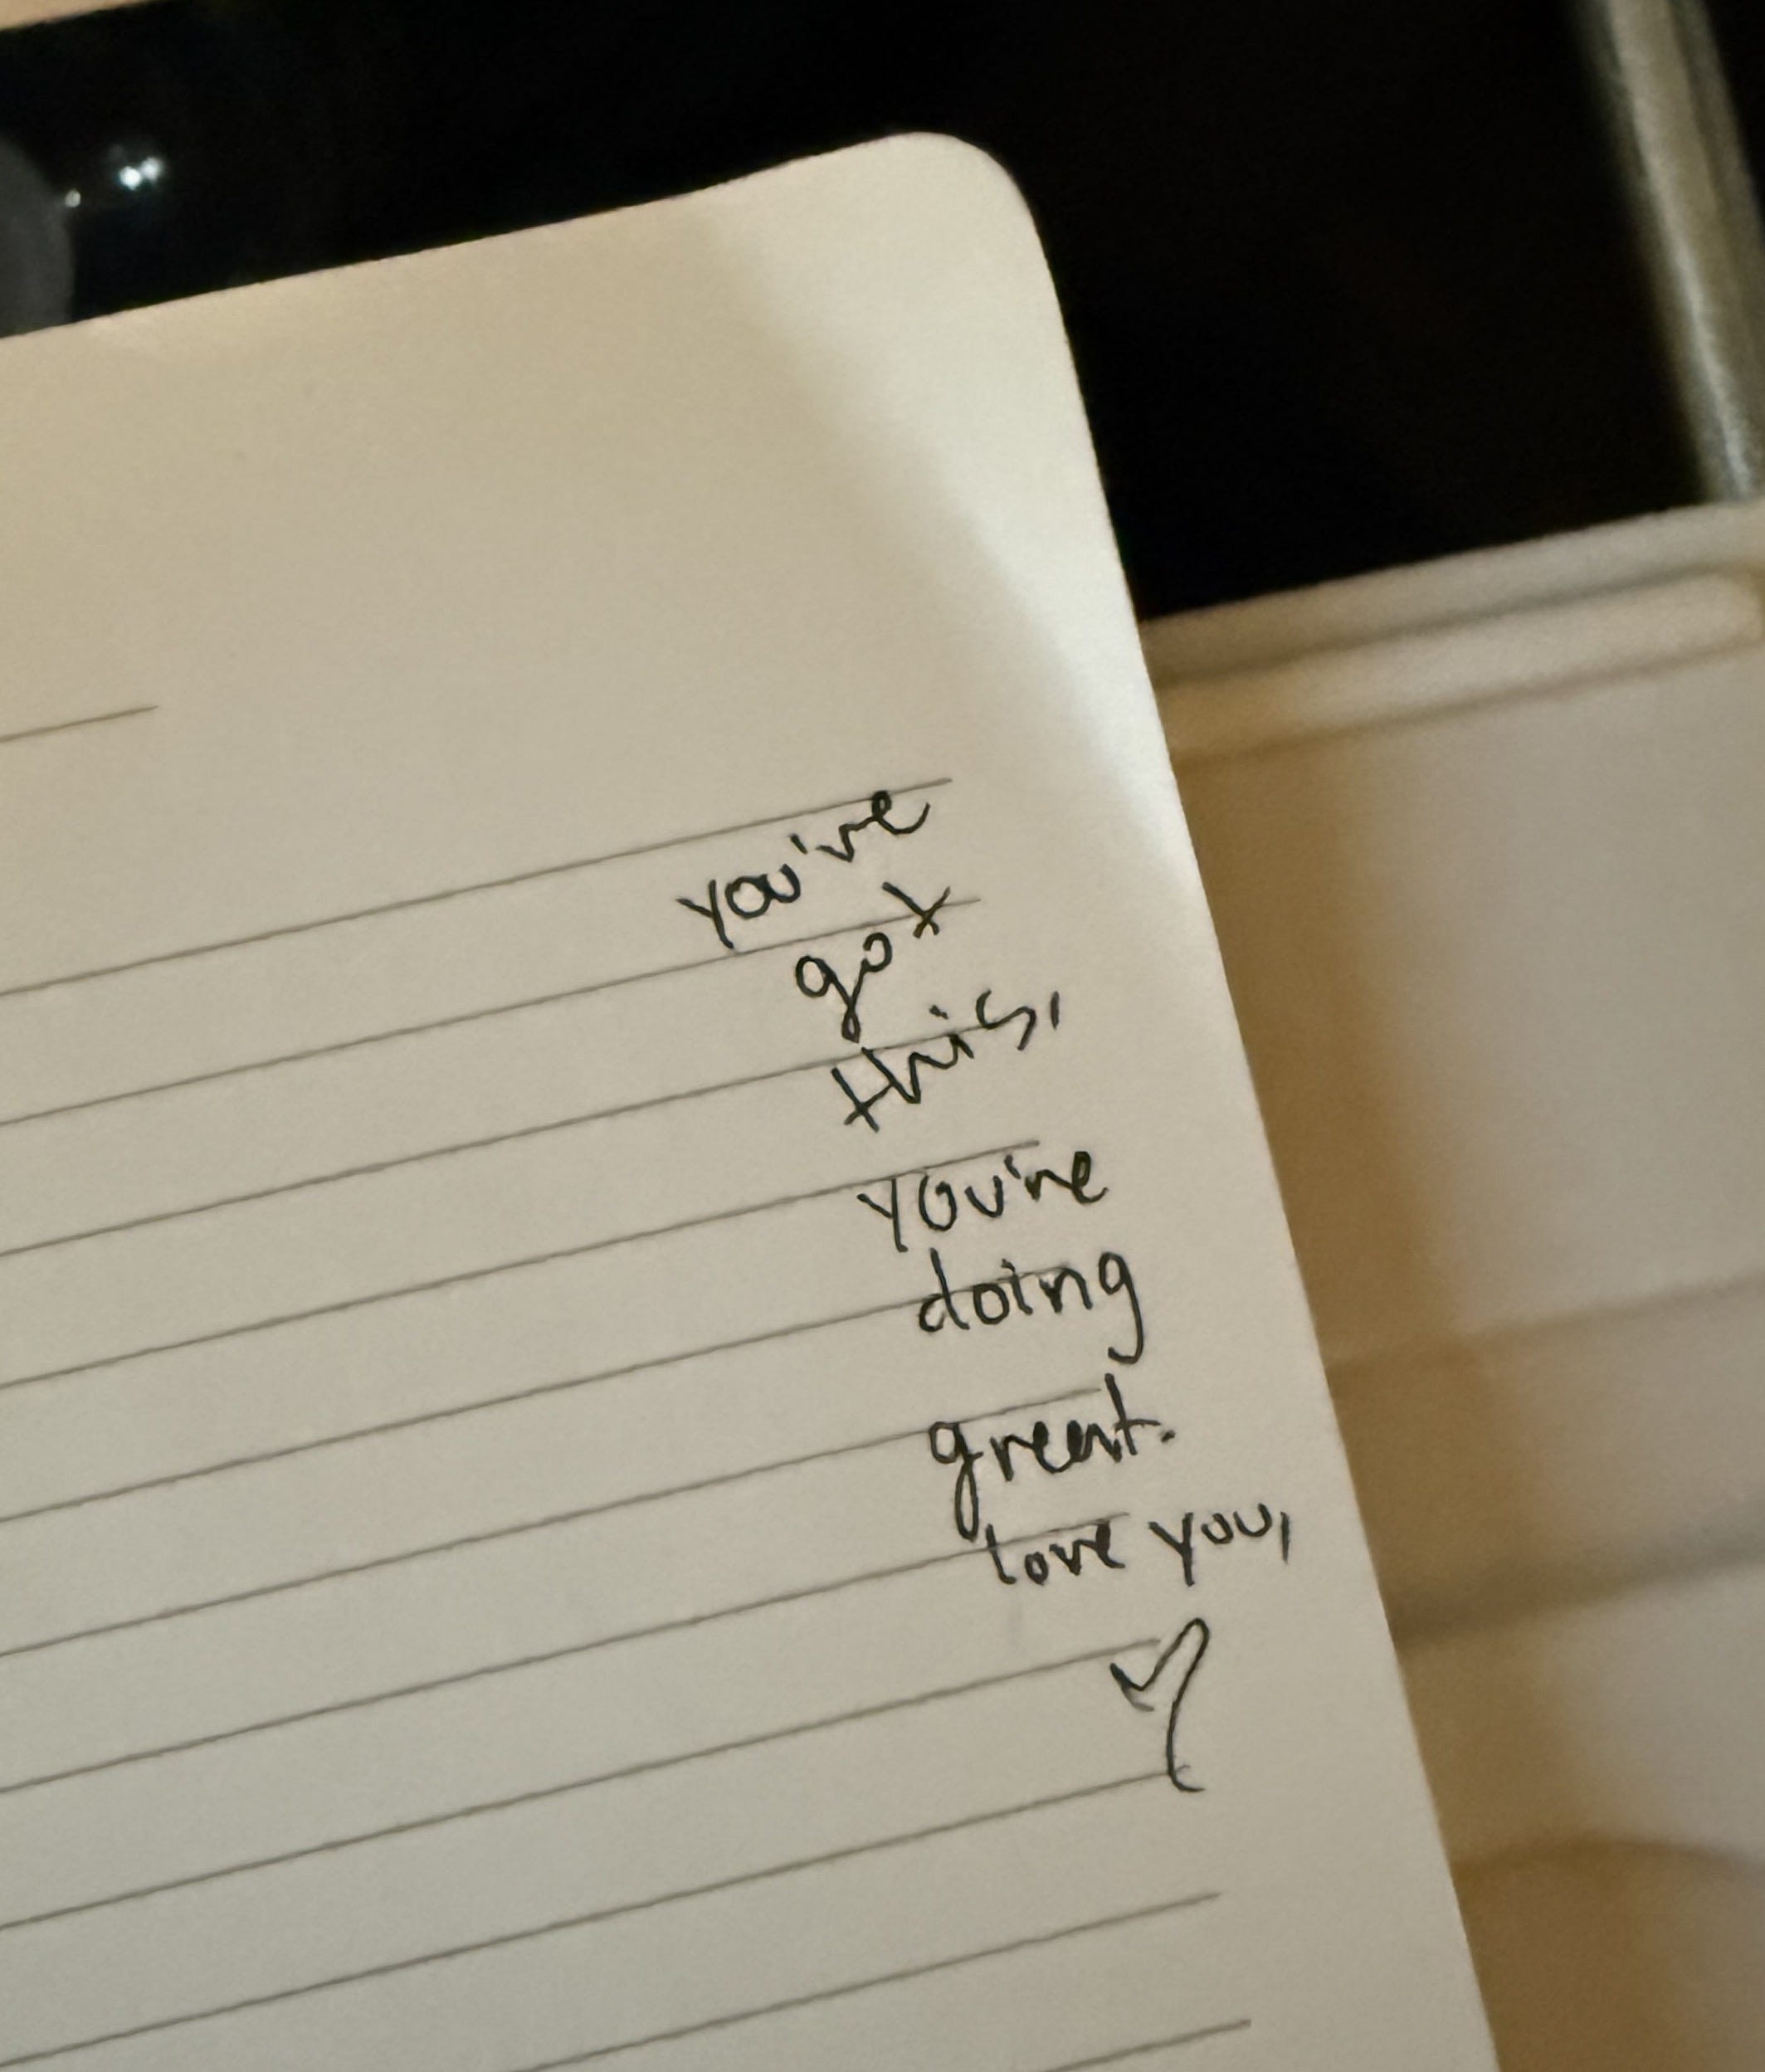 you've
got
this,
you're
doing
great.
love you,